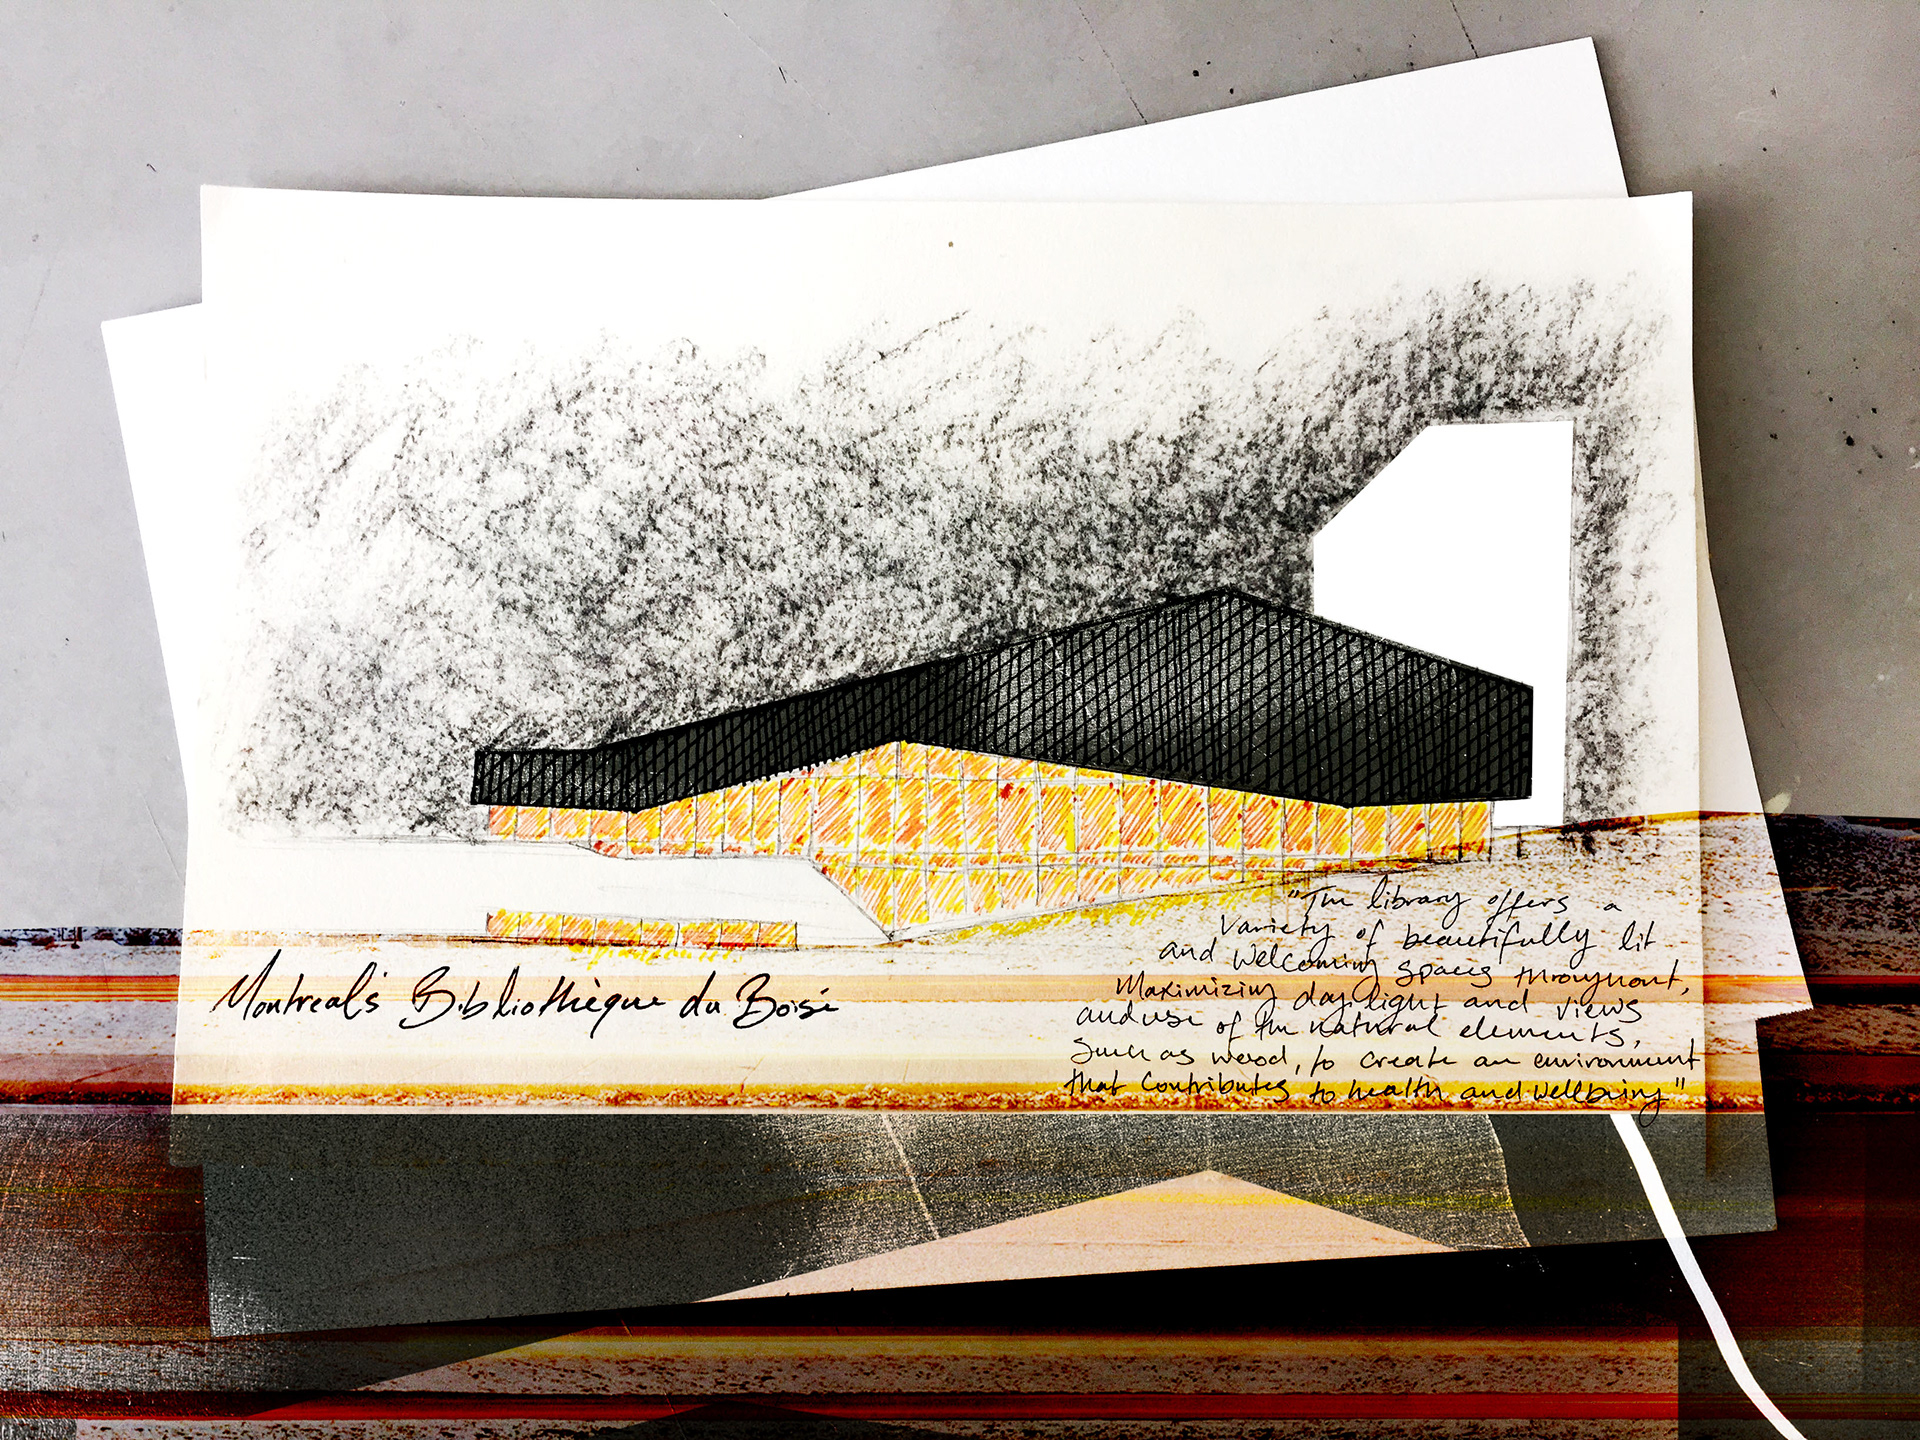 Montreal's Bibliothèque du Boisé
"The library offers a
variety of beautifully lit
and welcoming spaces throughout,
Maximizing daylight and views
and use of the natural elements,
such as wood, to create an environment
that contributes to health and wellbeing"